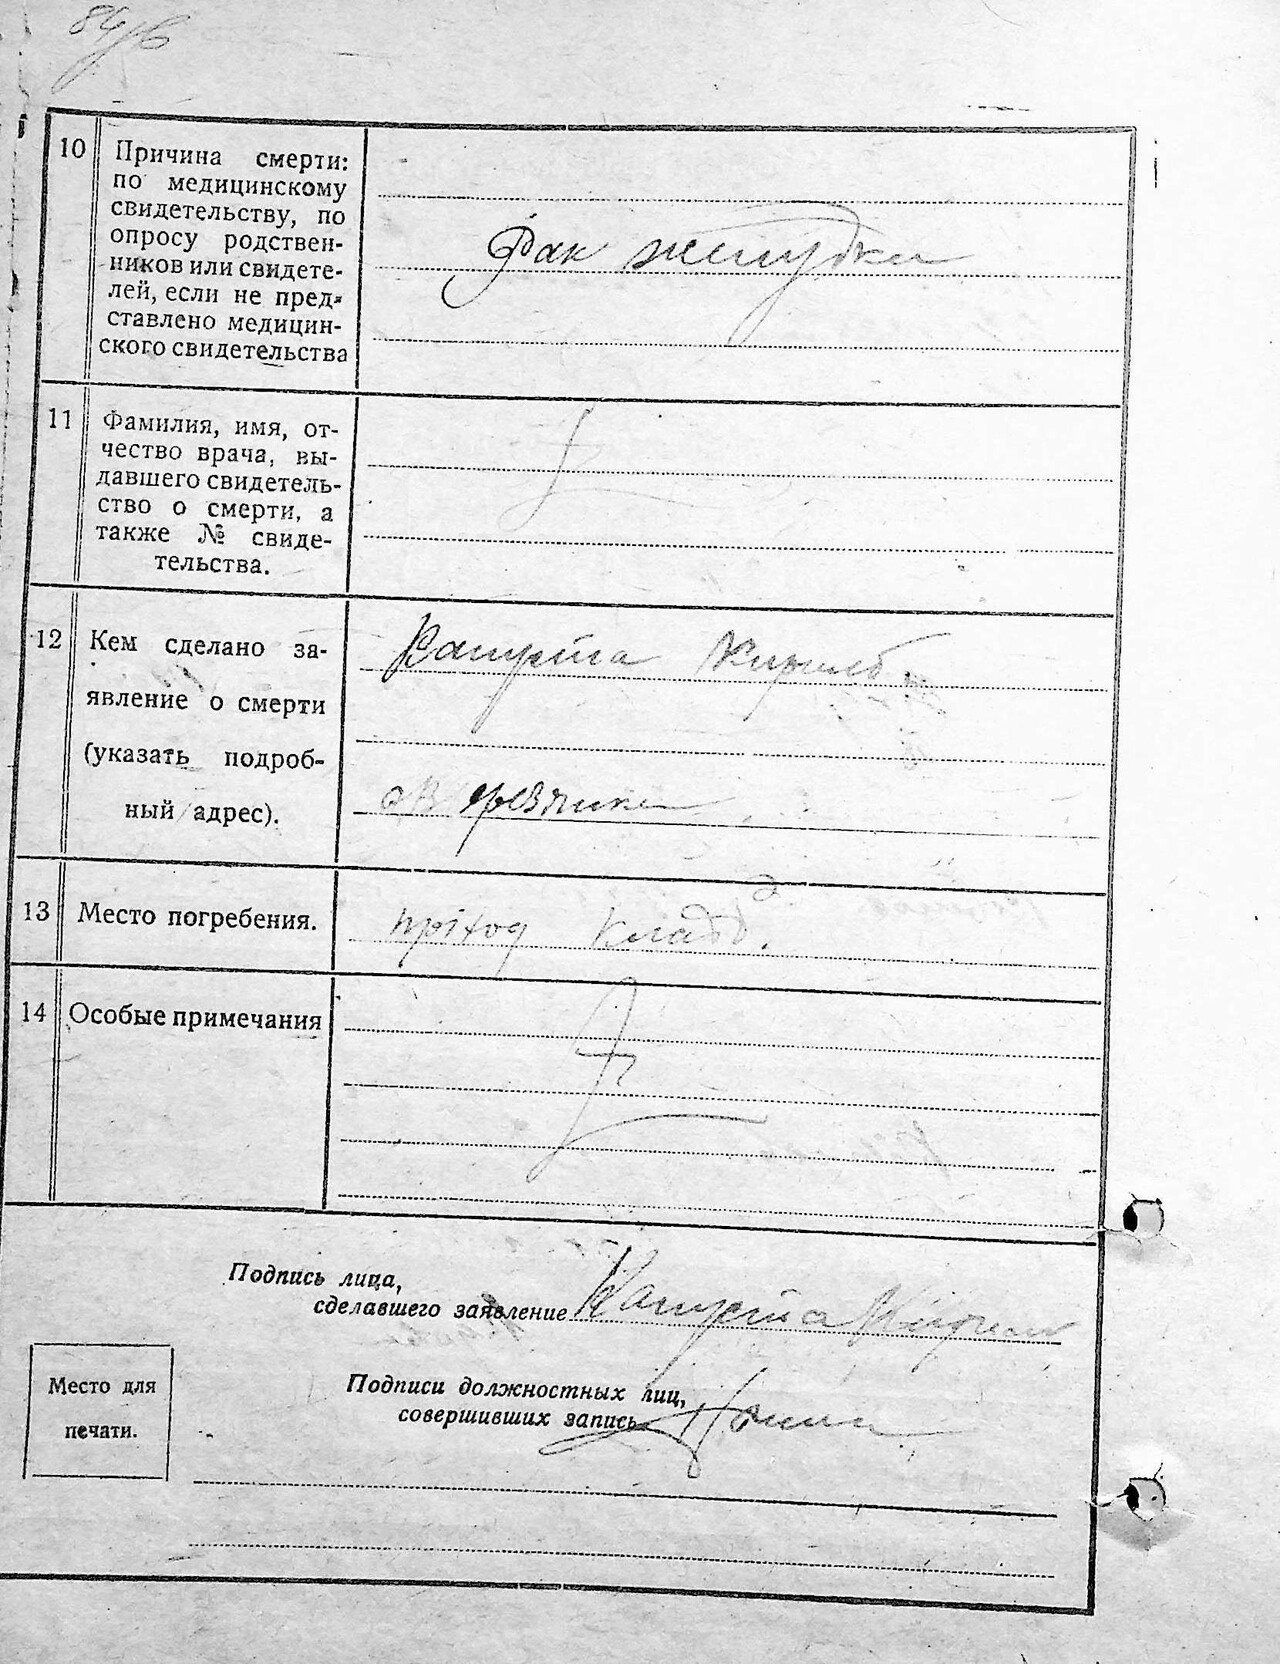 10
Причина смерти:
по медицинскому
свидетельству, по
опросу родствен-
ников или свидете-
лей, если не пред-
ставлено медицин-
ского свидетельства
Рак желудка
11
Фамилия, имя, от-
чество врача, вы-
давшего свидетель-
ство о смерти, а
также № свиде-
тельства.
12
Кем сделано за-
явление о смерти
(указать подроб-
ный адрес).
Капуста Кирилл
13
Место погребения.
пріход кладб.
14
Особые примечания
Подпись лица,
сделавшего заявление Капуста Кирилл
Подписи должностных лиц,
совершивших запись
Место для
печати.